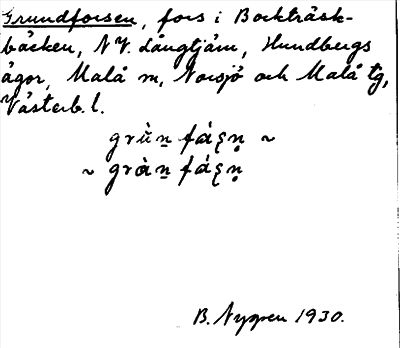 Grundforsen, fors i Bockträsk-
bäcken, NV. Långtjärn, Hundbergs
ägor, Malå sn, Norsjö och Malå tg,
Västerb. l.
grùn̠ fáʂn̥ ~
~ gràn̠ fáʂn̥
B. Nygren 1930.